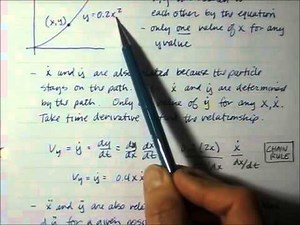 (x,y)
y=0.2x²
each other by the equation
- only one value of x for any
y value
- ẋ and ẏ are also related because the particle
stays on the path. ẋ and ẏ are determined
by the path. Only of ẏ for any x, ẋ.
Take time derivative the relationship.
Vy = ẏ = dy/dt = dy/dx dx/dt (2x) ẋ
dx/dt
CHAIN
RULE
Vy = ẏ = 0.4x ẋ
- ẍ and ÿ are also rela
ÿ for a given